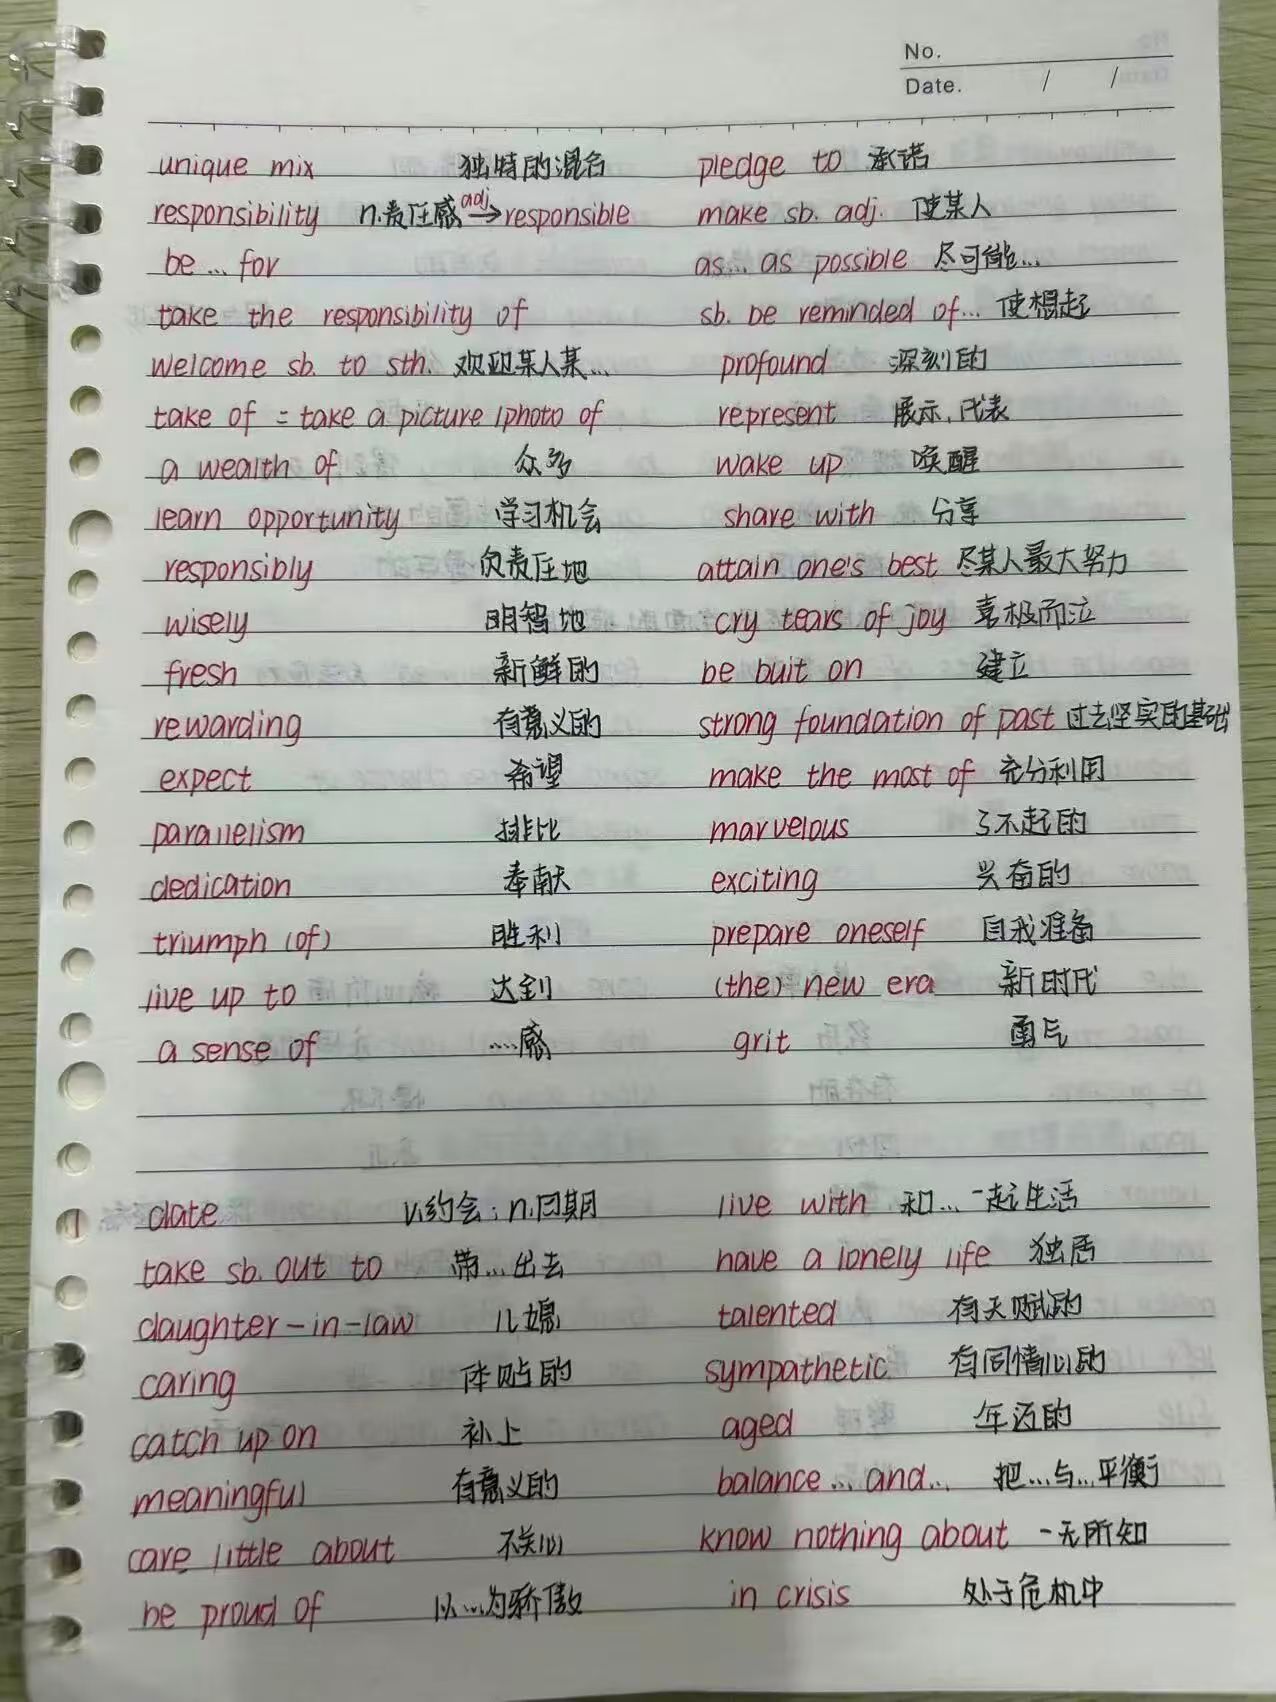 No.
Date. / /
unique mix 独特的混合 pledge to 承诺
responsibility n.责任感 adj→ responsible make sb. adj. 使某人
be ... for as... as possible 尽可能...
take the responsibility of sb. be reminded of... 使想起
welcome sb. to sth. 欢迎某人某... profound 深刻的
take of = take a picture /photo of represent 展示,代表
a wealth of 众多 wake up 唤醒
learn opportunity 学习机会 share with 分享
responsibly 负责任地 attain one's best 尽某人最大努力
wisely 明智地 cry tears of joy 喜极而泣
fresh 新鲜的 be buit on 建立
rewarding 有意义的 strong foundation of past 过去坚实的基础
expect 希望 make the most of 充分利用
parallelism 排比 marvelous 了不起的
dedication 奉献 exciting 兴奋的
triumph (of) 胜利 prepare oneself 自我准备
live up to 达到 (the) new era 新时代
a sense of ....感 grit 勇气
date v.约会; n.日期 live with 和...一起生活
take sb. out to 带...出去 have a lonely life 独居
daughter-in-law 儿媳 talented 有天赋的
caring 体贴的 sympathetic 有同情心的
catch up on 补上 aged 年迈的
meaningful 有意义的 balance... and... 把...与...平衡
care little about 不关心 know nothing about 一无所知
be proud of 以...为骄傲 in crisis 处于危机中